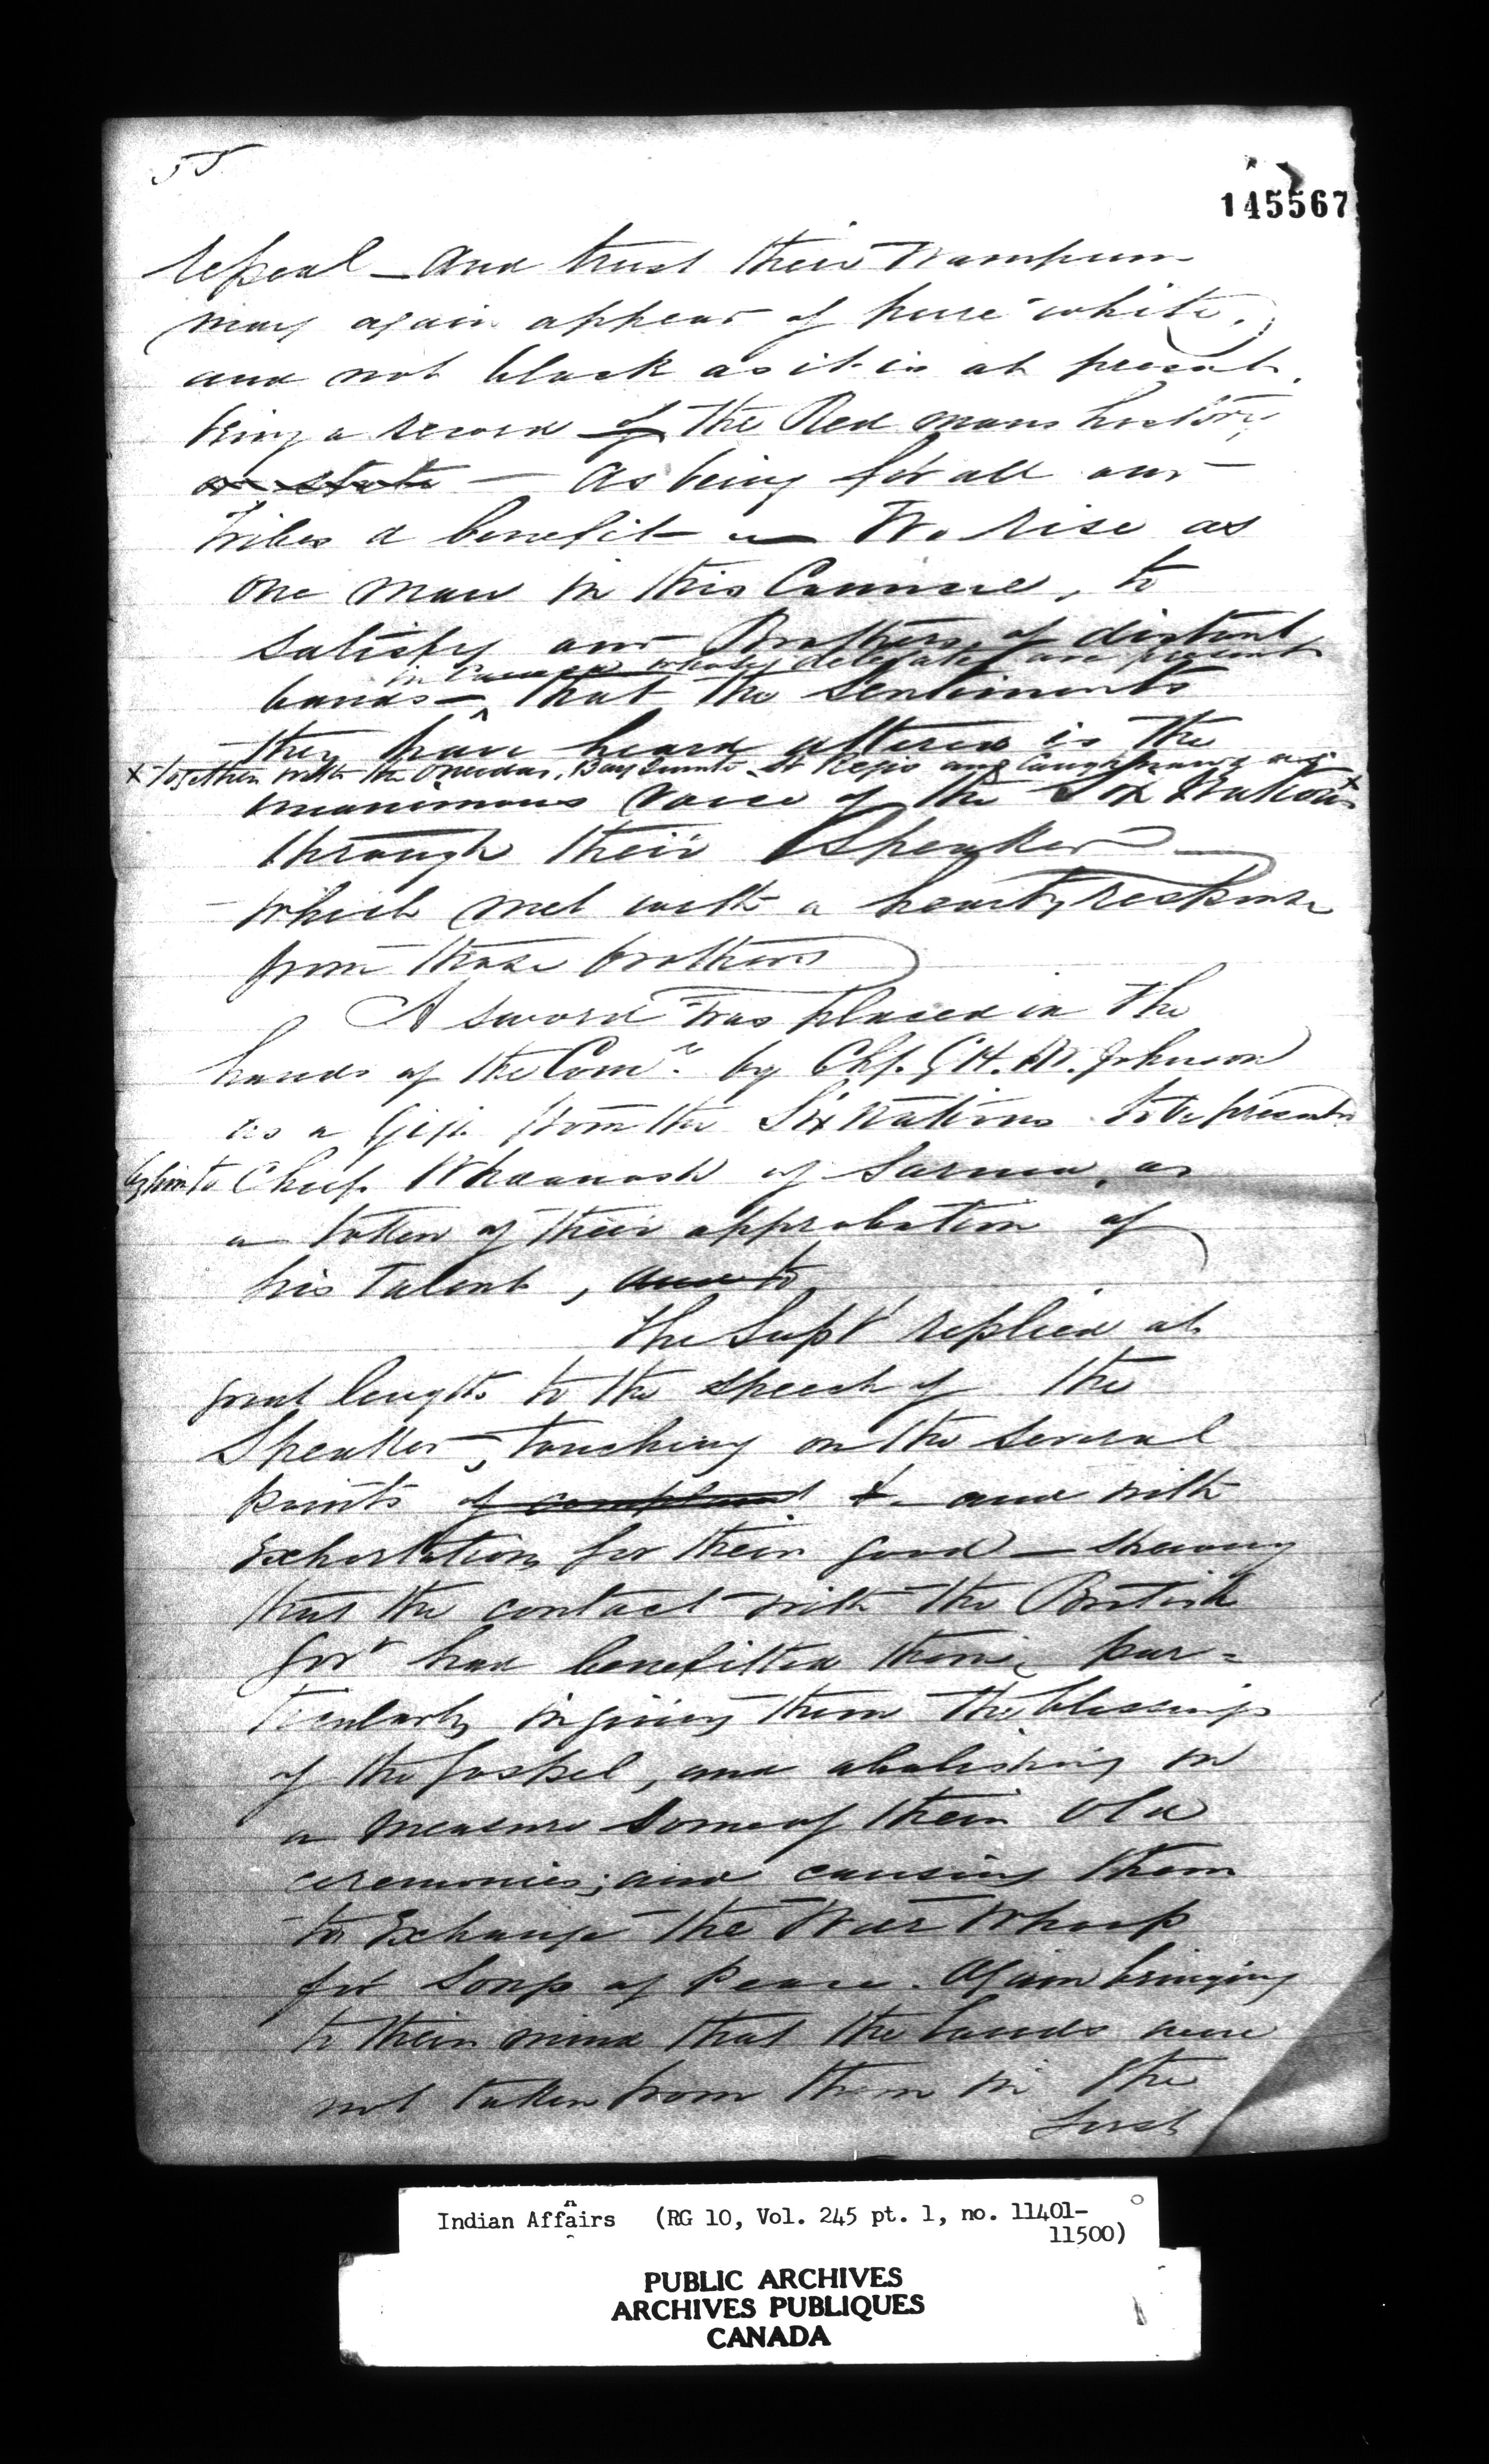 55
145567
repeal — And trust their Wampum
may again appear of pure white,
and not black as it is at present.
being a record of the Red mans history,
or state — As being for all our
Tribes a benefit — We rise as
one man in this Council, to
satisfy our Brothers, of distant
in Council whose delegates are present
bands — that the sentiments
they have heard uttered is the
x together with the Oneidas, Bay Quinte, St Regis and Caughnawaga
unanimous voice of the Six Nations x
through their Speaker —
which met with a hearty response
from those brothers
A sword was placed in the
hands of the Comr. by Chf. G. H. M. Johnson
as a Gift from the Six Nations to be presented
by him to Chief Waanosh of Sarnia, as
a token of their approbation of
his Talent, and to
The Supt replied at
great length to the speech of the
Speaker, touching on the several
points of complaint & and with
Exhortations for their good — shewing
that the contact with the British
Govt had benefitted them, par=
ticularly in giving them the blessings
of the Gospel, and abolishing in
a measure some of their old
ceremonies; and causing them
to Exchange the War Whoop
for Songs of Peace. Again bringing
to their mind that the lands were
not taken from them in the
first
Indian Affairs (RG 10, Vol. 245 pt. 1, no. 11401-
11500)
PUBLIC ARCHIVES
ARCHIVES PUBLIQUES
CANADA